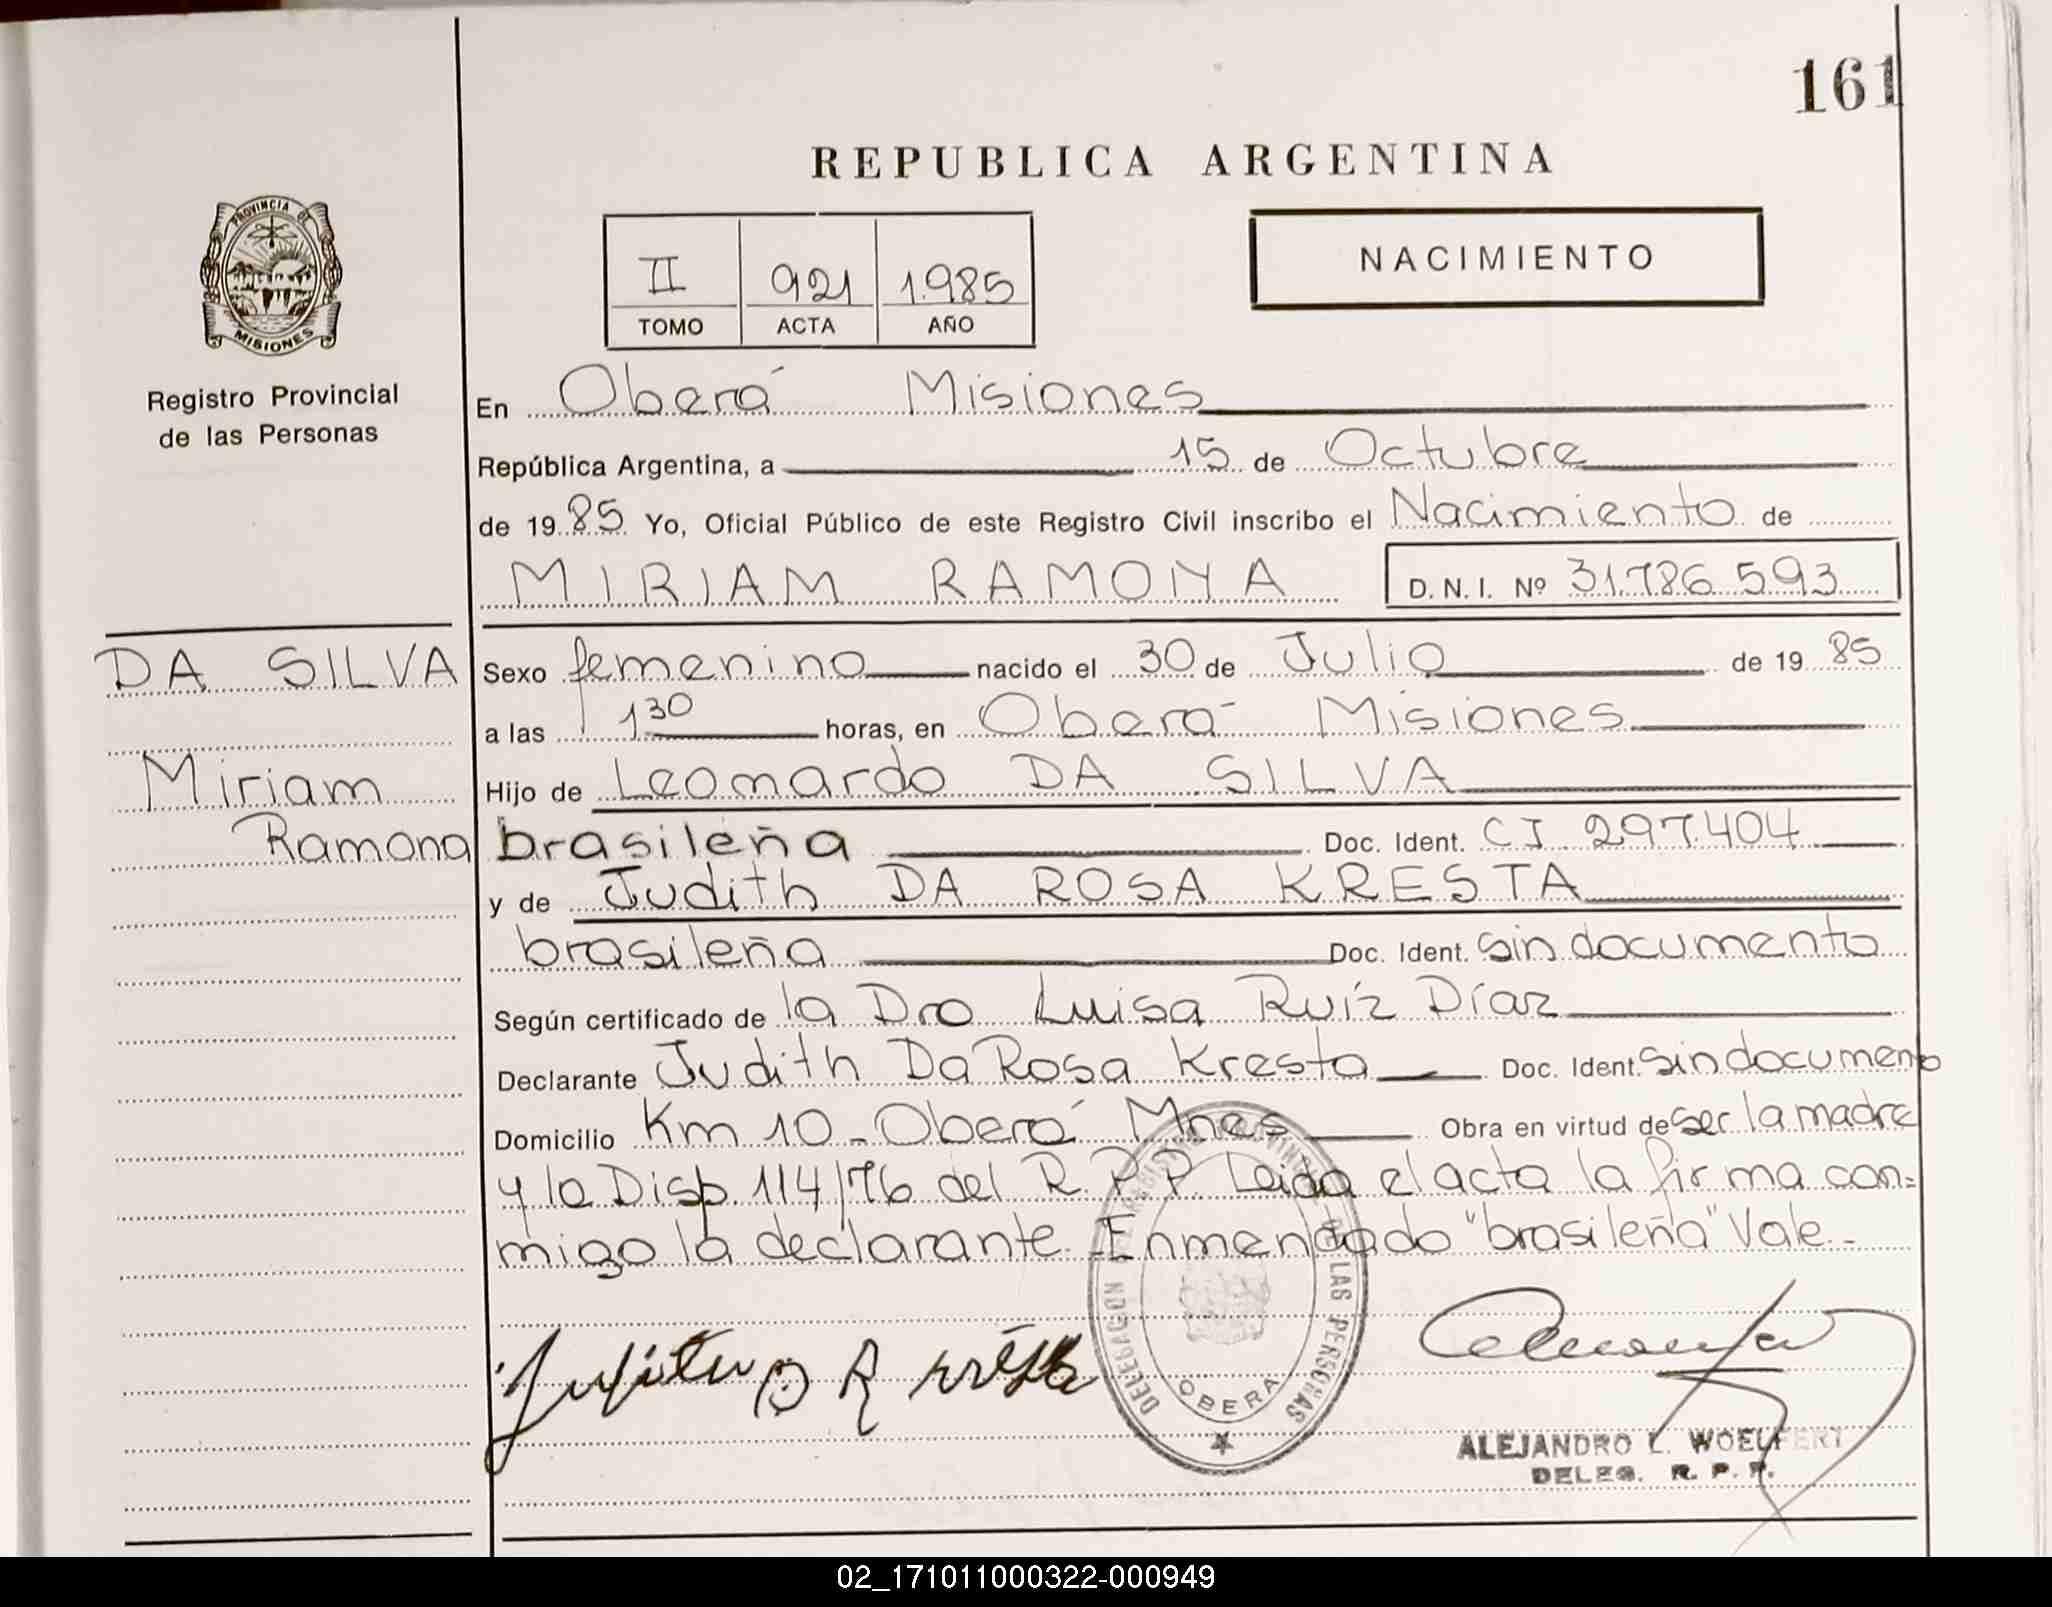 161
REPUBLICA ARGENTINA
PROVINCIA DE
MISIONES
Registro Provincial
de las Personas
II 921 1.985
TOMO ACTA AÑO
NACIMIENTO
En Oberá Misiones
República Argentina, a 15 de Octubre
de 1985 Yo, Oficial Público de este Registro Civil inscribo el Nacimiento de
MIRIAM RAMONA D. N. I. Nº 31.786.593
DA SILVA
Miriam
Ramona
Sexo femenino nacido el 30 de Julio de 1985
a las 1 30 horas, en Oberá Misiones
Hijo de Leonardo DA SILVA
brasileña Doc. Ident. CI 297.404
y de Judith DA ROSA KRESTA
brasileña Doc. Ident. sin documento
Según certificado de la Dra Luisa Ruíz Díaz
Declarante Judith Da Rosa Kresta Doc. Ident. sin documento
Domicilio Km 10 - Oberá Mnes Obra en virtud de ser la madre
y la Disp. 114/76 del R. P. P. Leida el acta la firma con=
migo la declarante. Enmendado "brasileña" Vale.-
DELEGACION DE LAS PERSONAS
OBERA
ALEJANDRO L. WOELFERT
DELEG. R. P. P.
02_171011000322-000949